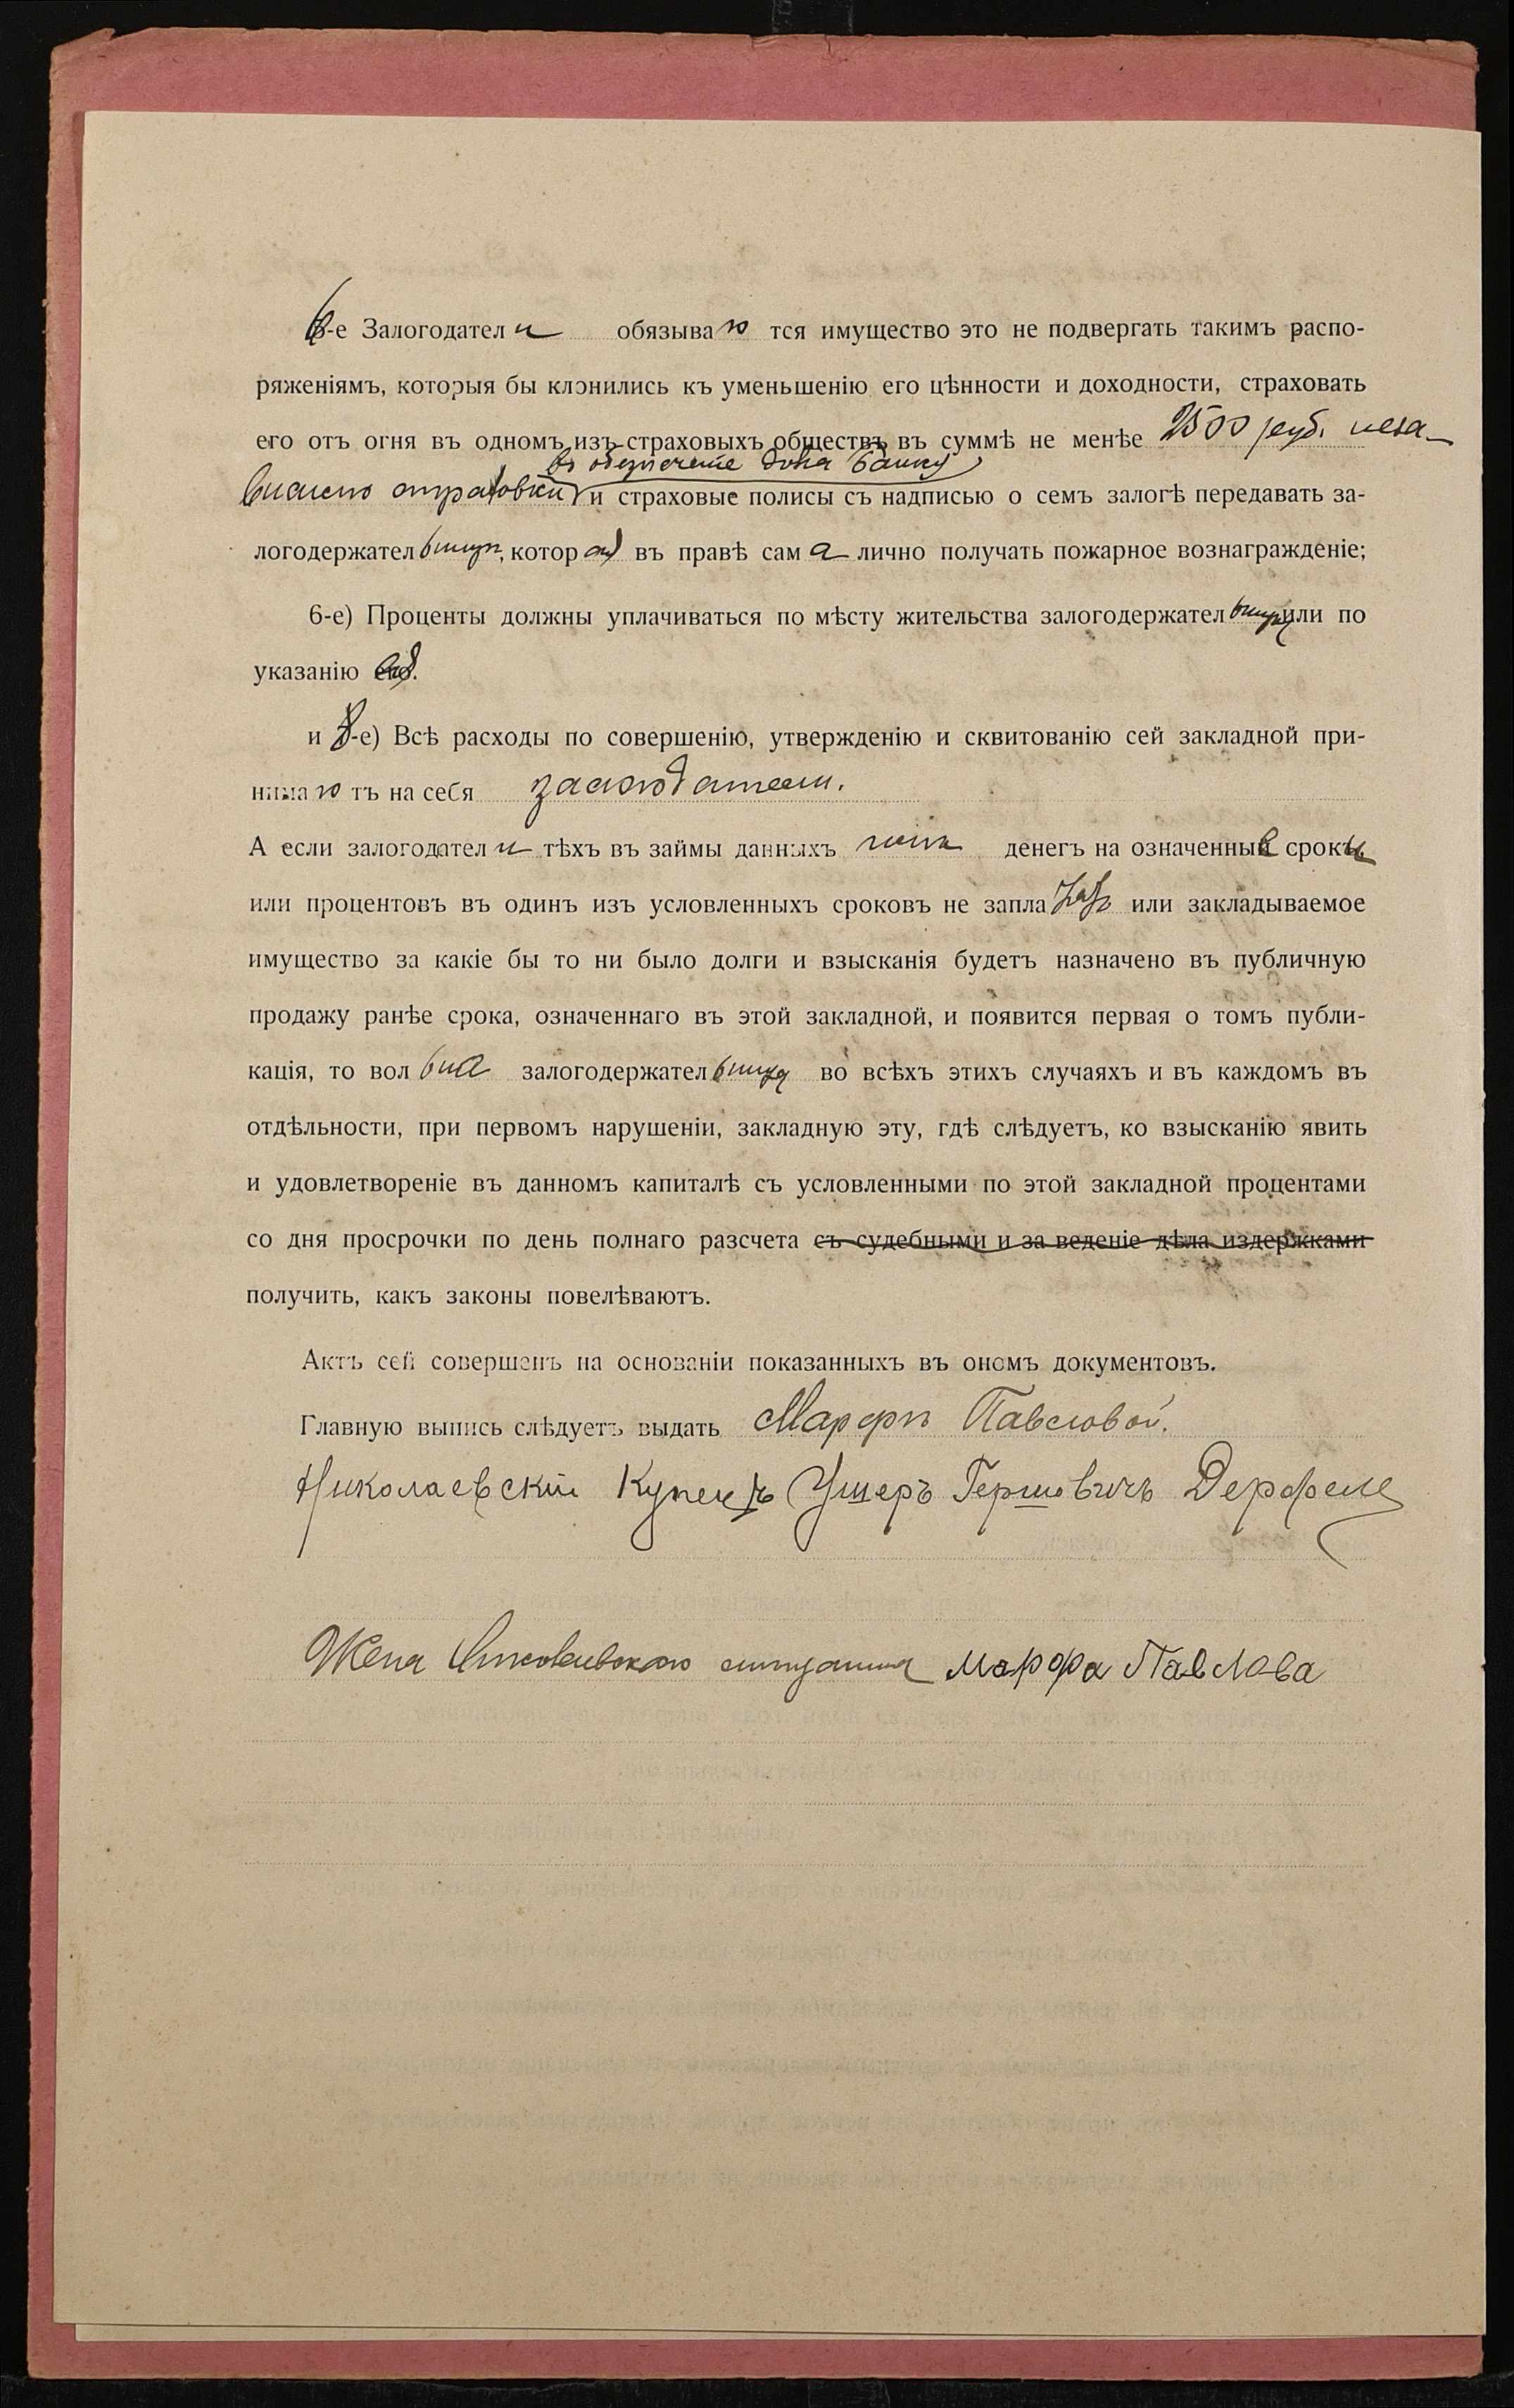 6-е Залогодатели обязываются имущество это не подвергать такимъ распо-
ряженіямъ, которыя бы клонились къ уменьшенію его цѣнности и доходности, страховать
его отъ огня въ одномъ изъ страховыхъ обществъ въ суммѣ не менѣе 2500 руб. неза-
въ обезпеченіе долга банку
висимо страховки и страховые полисы съ надписью о семъ залогѣ передавать за-
логодержательницѣ, которая въ правѣ сама лично получать пожарное вознагражденіе;
6-е) Проценты должны уплачиваться по мѣсту жительства залогодержательницы или по
указанію ея.
и 8-е) Всѣ расходы по совершенію, утвержденію и сквитованію сей закладной при-
нимаютъ на себя залогодатели.
А если залогодатели тѣхъ въ займы данныхъ имъ денегъ на означенные сроки
или процентовъ въ одинъ изъ условленныхъ сроковъ не заплатятъ или закладываемое
имущество за какіе бы то ни было долги и взысканія будетъ назначено въ публичную
продажу ранѣе срока, означеннаго въ этой закладной, и появится первая о томъ публи-
кація, то вольна залогодержательница во всѣхъ этихъ случаяхъ и въ каждомъ въ
отдѣльности, при первомъ нарушеніи, закладную эту, гдѣ слѣдуетъ, ко взысканію явить
и удовлетвореніе въ данномъ капиталѣ съ условленными по этой закладной процентами
со дня просрочки по день полнаго разсчета съ судебными и за веденіе дѣла издержками
получить, какъ законы повелѣваютъ.
Актъ сей совершенъ на основаніи показанныхъ въ ономъ документовъ.
Главную выпись слѣдуетъ выдать Марфѣ Павловой.
Николаевскій Купецъ Ушеръ Гершовичъ Дерфель
Жена Николаевского мещанина Марфа Павлова